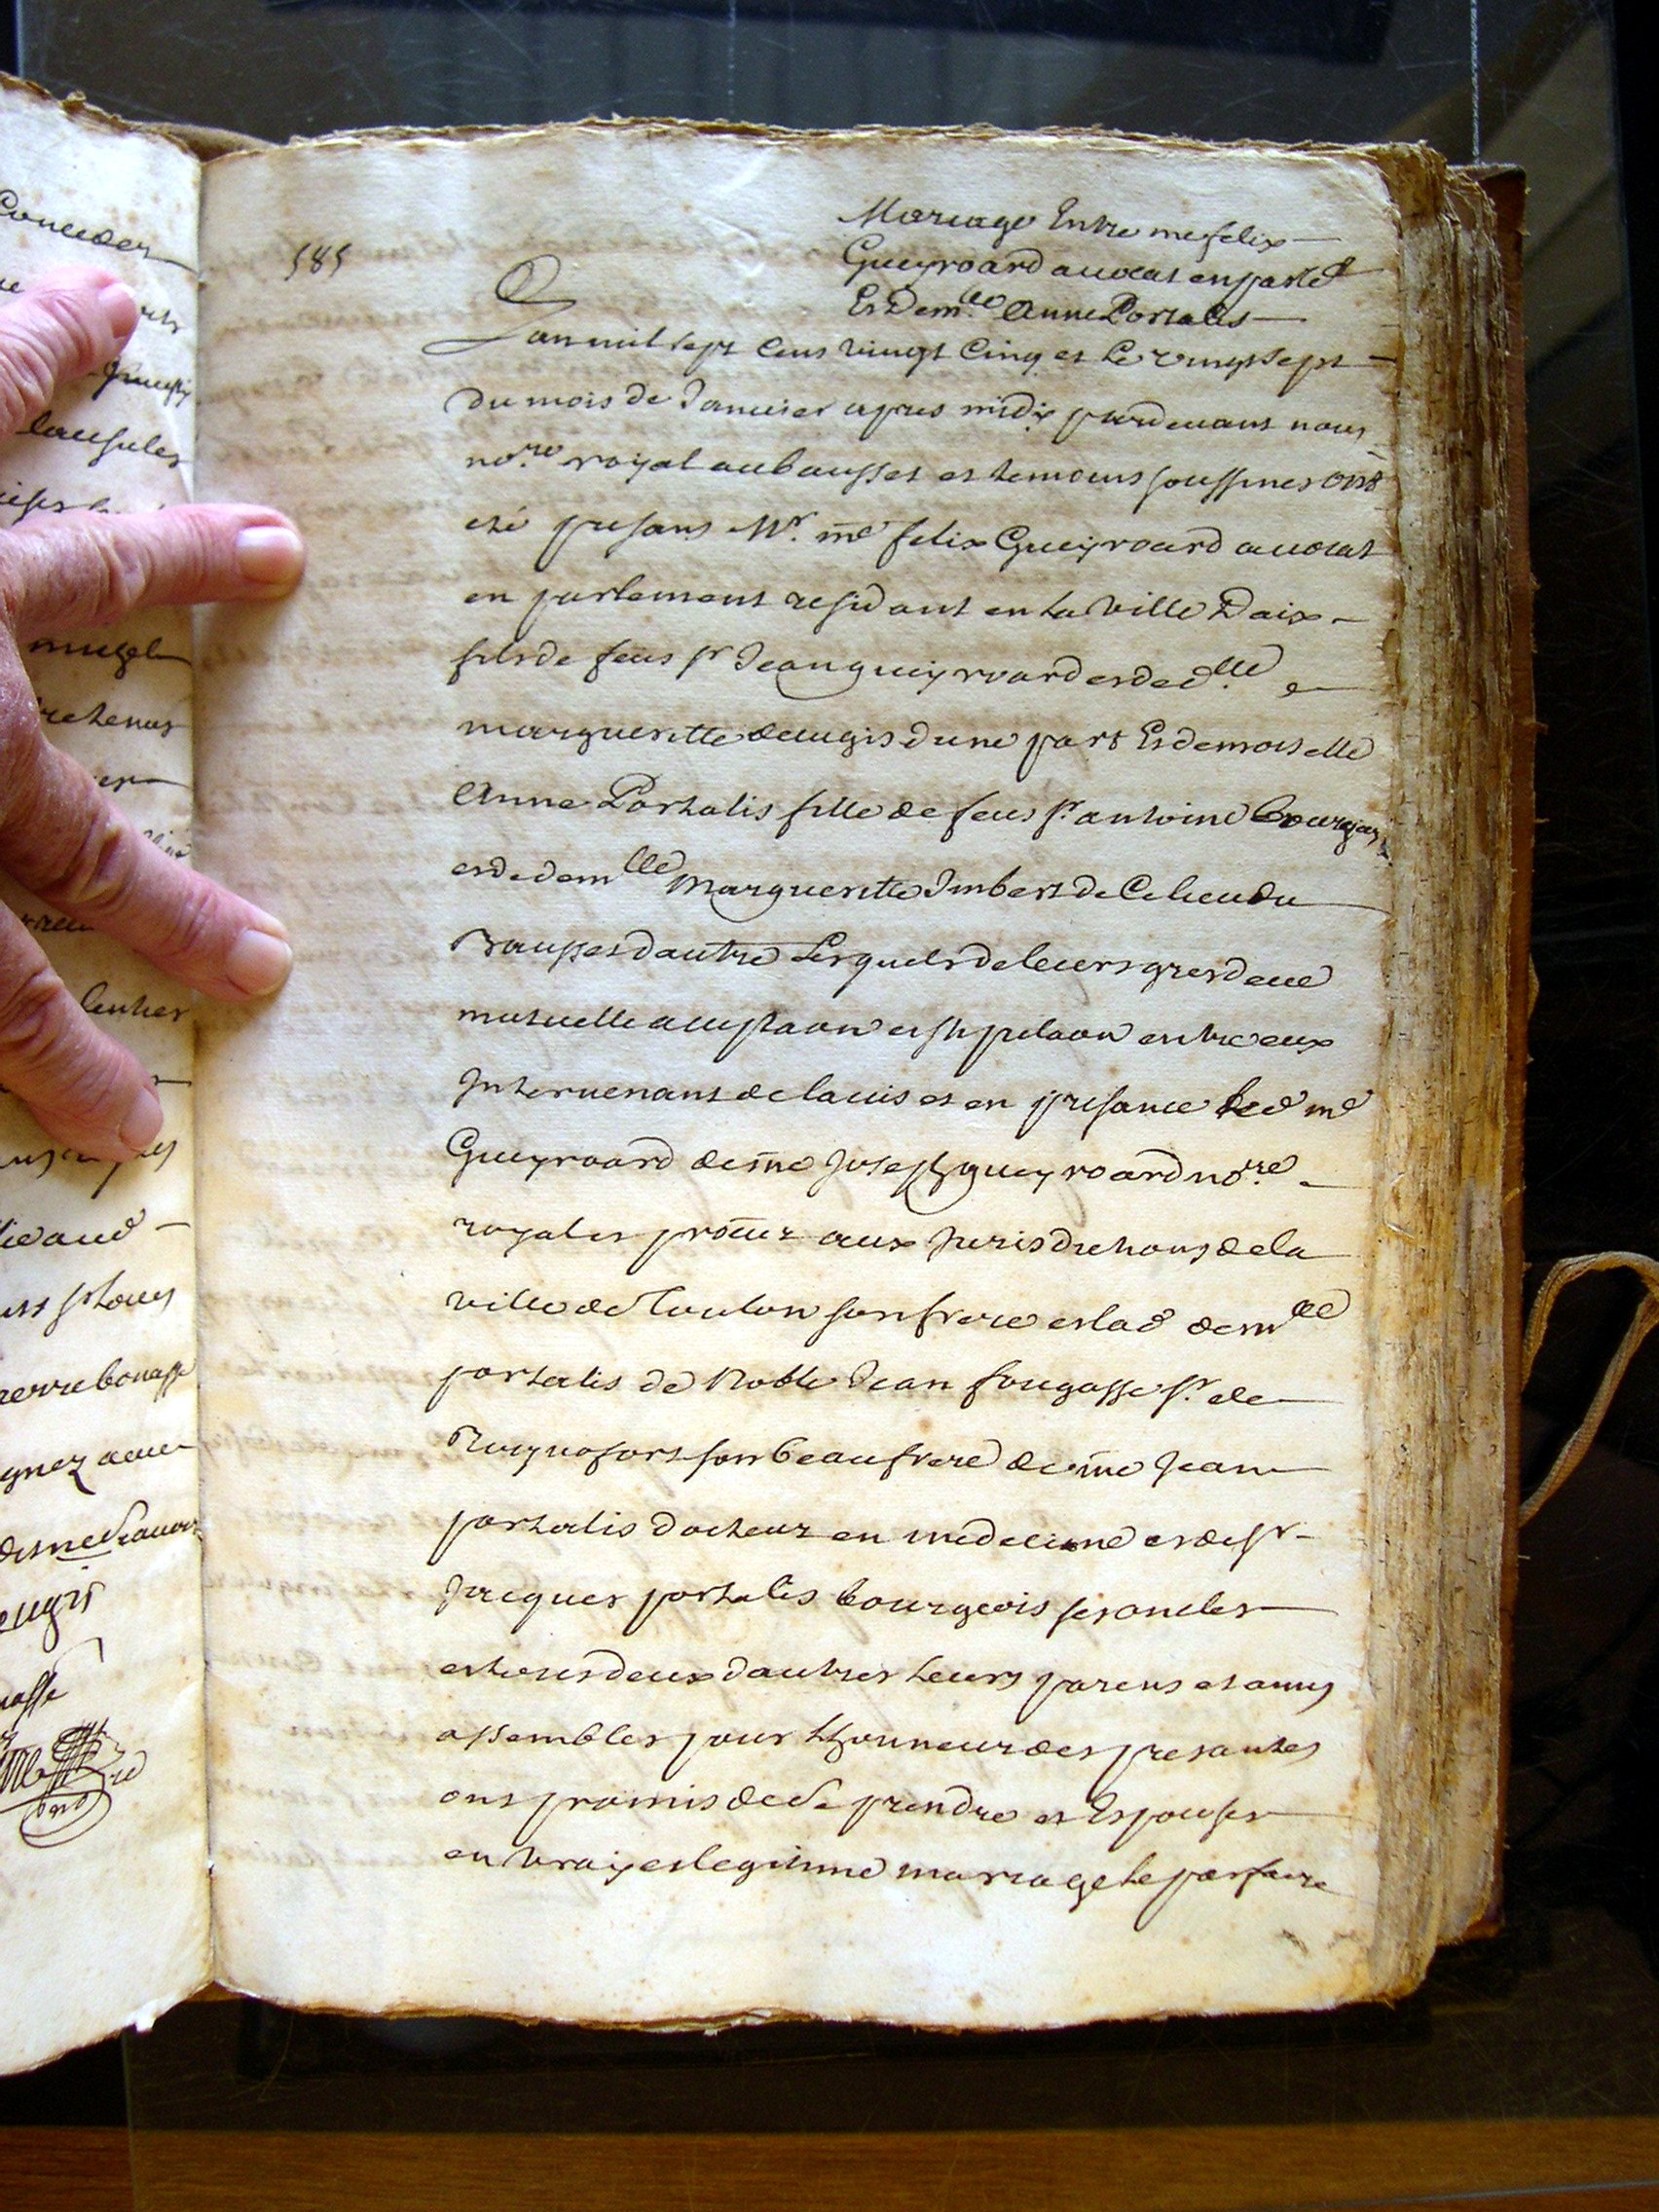 Conceder
lausules
mugel
retenus
lenher
ierre bonasse
gnez avec
eugis
nasse
585
Mariage Entre me felix
Gueyroard auocat en parle^t
Et Dem.^lle Anne Portalis
Lan mil sept cens vingt cinq et le vingt sept
du mois de Januier apres midy pardeuant nous
no.^re royal au bausset et temoins soussines ont
eté presans Mr. me felix Gueyroard auocat
en parlement residant en la ville Daix
fils de feus sr Jean gueyroard et de d.^lle
margueritte deaugis dune part Et demoiselle
Anne Portalis fille de feus sr. antoine bourgeois
et de dem^lle margueritte Imbert de Ce lieu du
Bausset dautre Lesquels de leurs gres deue
mutuelle acceptaon et stipulaon entre eux
Interuenant de lauis et en presance led me
Gueyroard de me Joseph gueyroard no.^re
royal et procur aux Jurisdictions de la
ville de Toulon son frere et lad dem^lle
portalis de Noble Jean fougasse sr. de
Ruquefort son beaufrere de me Jean
portalis docteur en medecine et de sr
Jacques portalis bourgeois ses oncles
et tous deux dautres leurs parens et amis
assembles pour Lhonneur des presantes
ont promis de se prendre et Espouser
en vray et legitime mariage le parfaire